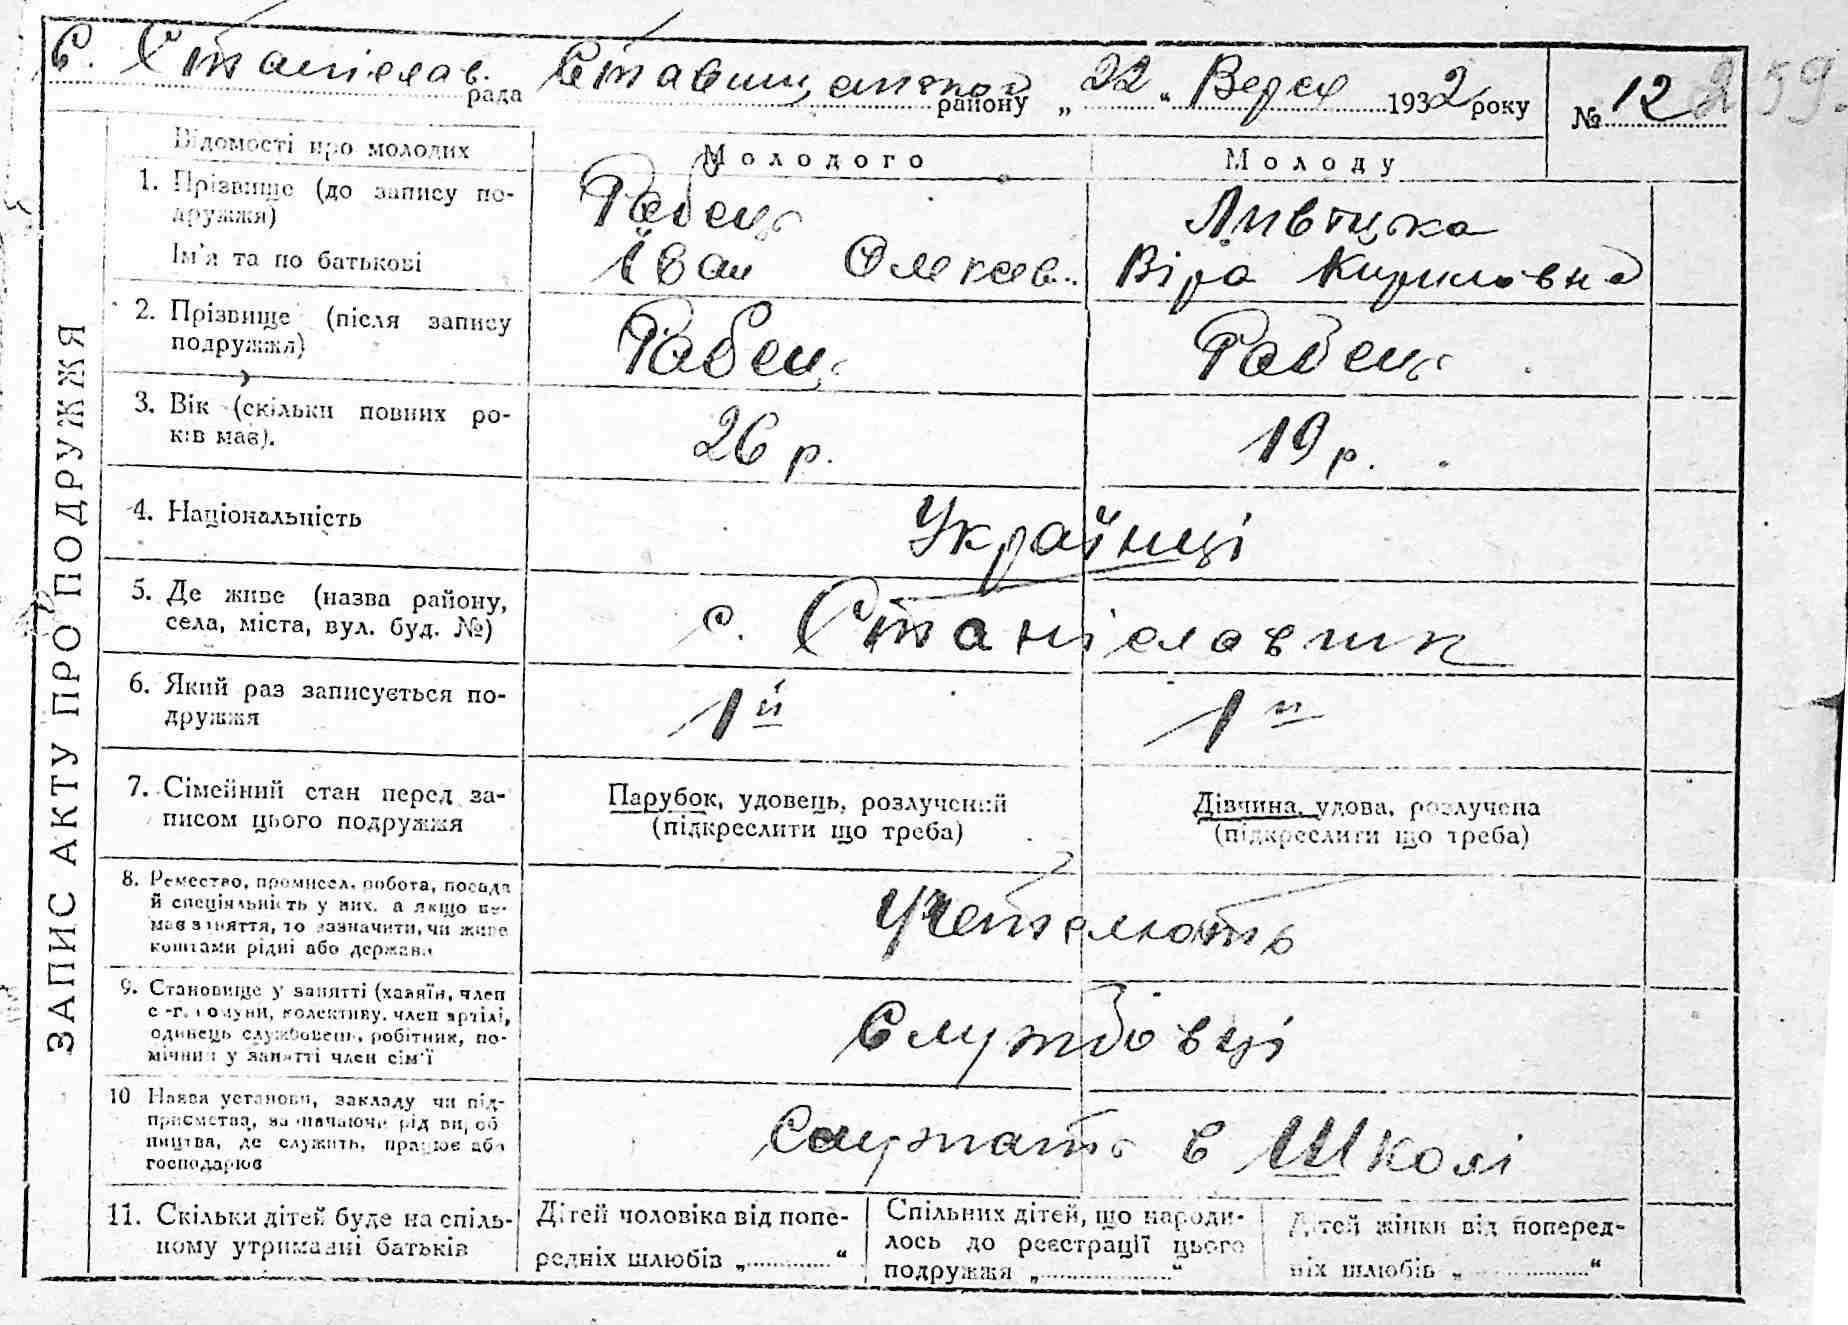 С. Станіслав. рада Ставищанськой району „22“ Верес 1932 року № 12 259.
ЗАПИС АКТУ ПРО ПОДРУЖЖЯ
Відомості про молодих
Молодого
Молоду
1. Прізвище (до запису по-
дружжя)
Рабець
Ливицка
Ім'я та по батькові
Іван Олексев.
Віра Кириловна
2. Прізвище (після запису
подружжя)
Рабець
Рабець
3. Вік (скільки повних ро-
ків має).
26 р.
19 р.
4. Національність
Українці
5. Де живе (назва району,
села, міста, вул. буд. №)
с. Станіславчик
6. Який раз записується по-
дружжя
1й
1й
7. Сімейний стан перед за-
писом цього подружжя
Парубок, удовець, розлучений
(підкреслити що треба)
Дівчина, удова, розлучена
(підкреслити що треба)
8. Ремество, промисел, робота, посада
й спеціяльність у них, а якщо не-
має заняття, то зазначити, чи живе
коштами рідні або держави
Учителюють
9. Становище у занятті (хазяїн, член
с.-г. комуни, колективу, член артілі,
одинець службовець, робітник, по-
мічний у занятті член сім'ї
Службовці
10 Назва установи, закладу чи під-
приємства, зазначаючи рід вироб
ництва, де служить, працює або
господарює
Служать в Школі
11. Скільки дітей буде на спіль-
ному утриманні батьків
Дітей чоловіка від попе-
редніх шлюбів „............“
Спільних дітей, що народи-
лось до реєстрації цього
подружжя „..................“
Дітей жінки від поперед-
ніх шлюбів „..................“